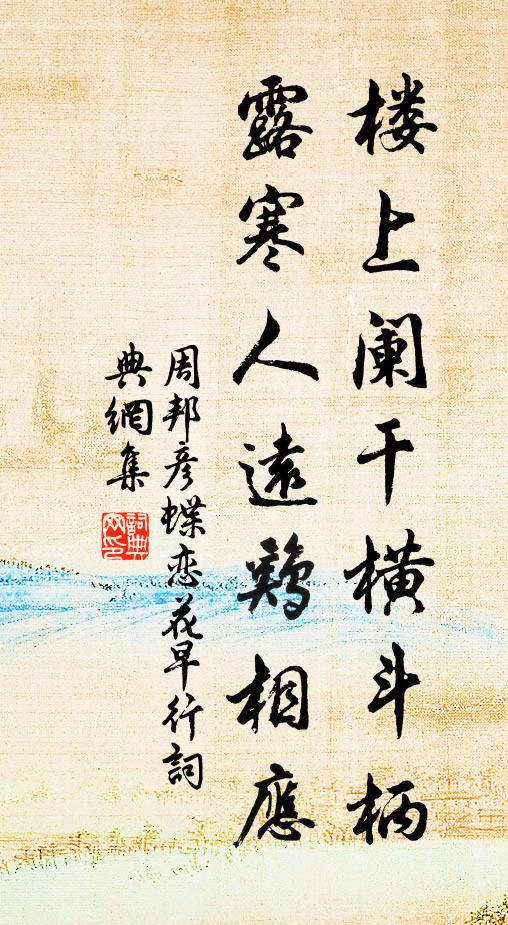 楼上阑干横斗柄
露寒人遠鷄相應
周邦彦蝶恋花早行詞
典網集
詞典
网印